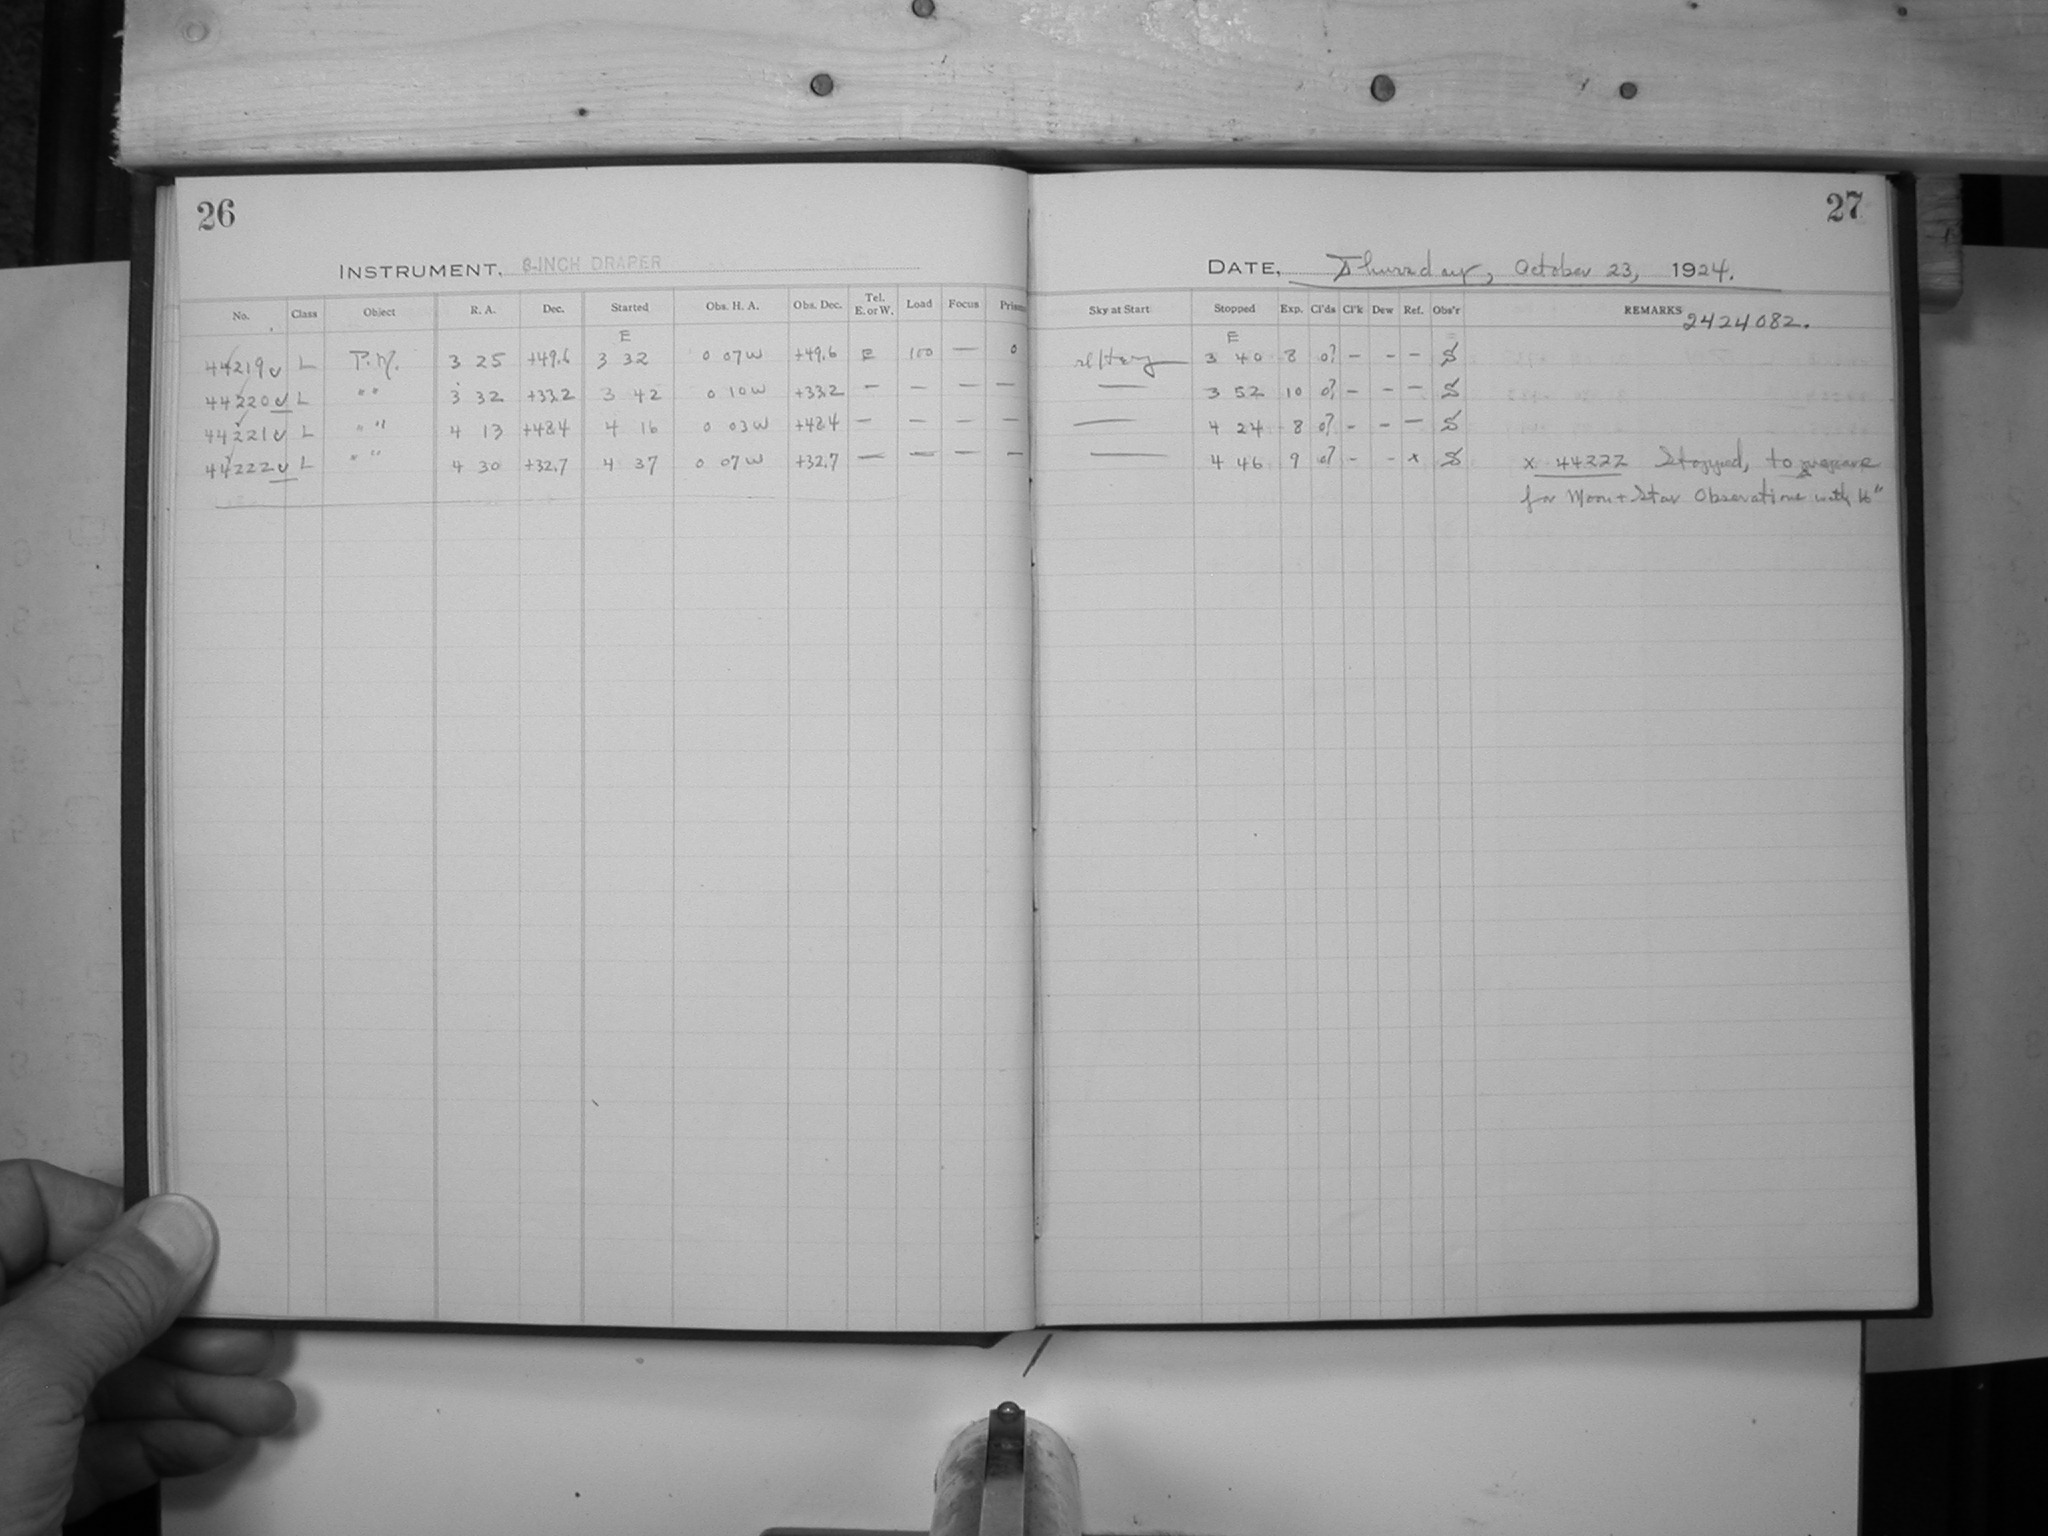 26
INSTRUMENT, 8-INCH DRAPER
No. Class Object R. A. Dec. Started Obs. H. A. Obs. Dec. Tel. E. or W. Load Focus Prism
E
44219 L P.M. 3 25 +49.6 3 32 0 07 W +49.6 E 100 — 0
44220 L " " 3 32 +33.2 3 42 0 10 W +33.2 — — — —
44221 L " " 4 13 +48.4 4 16 0 03 W +48.4 — — — —
44222 L " " 4 30 +32.7 4 37 0 07 W +32.7 — — — —
27
DATE, Thursday, October 23, 1924.
Sky at Start Stopped Exp. Cl'ds Cl'k Dew Ref. Obs'r REMARKS 2424082.
E
sl Hazy 3 40 8 0? – – – S
— 3 52 10 0? – – – S
— 4 24 8 0? – – – S
— 4 46 9 0? – – x S x 44222 Stopped, to prepare
for Moon + Star Observations with 16"